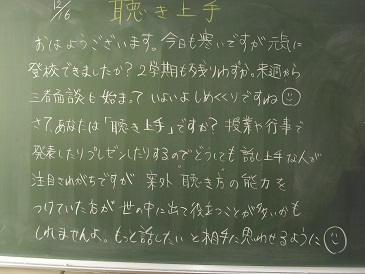 12/6 聴き上手
おはようございます。今日も寒いですが元気に
登校できましたか？2学期も残りわずか。来週から
三者面談も始まって いよいよしめくくりですね
さて、あなたは「聴き上手」ですか？ 授業や行事で
発表したりプレゼンしたりするのでどうしても 話し上手な人が
注目されがちですが 案外 聴き方の能力を
つけていた方が 世の中に出て役立つことが多いかも
しれませんよ。もっと話したい と相手に思わせるように